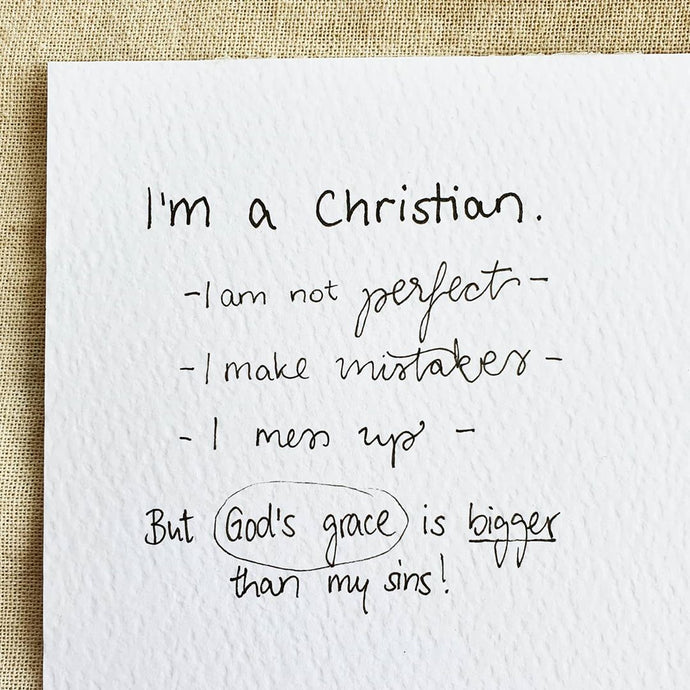 I'm a Christian.
-I am not perfect-
-I make mistakes-
- I mess up -
But God's grace is bigger
than my sins!